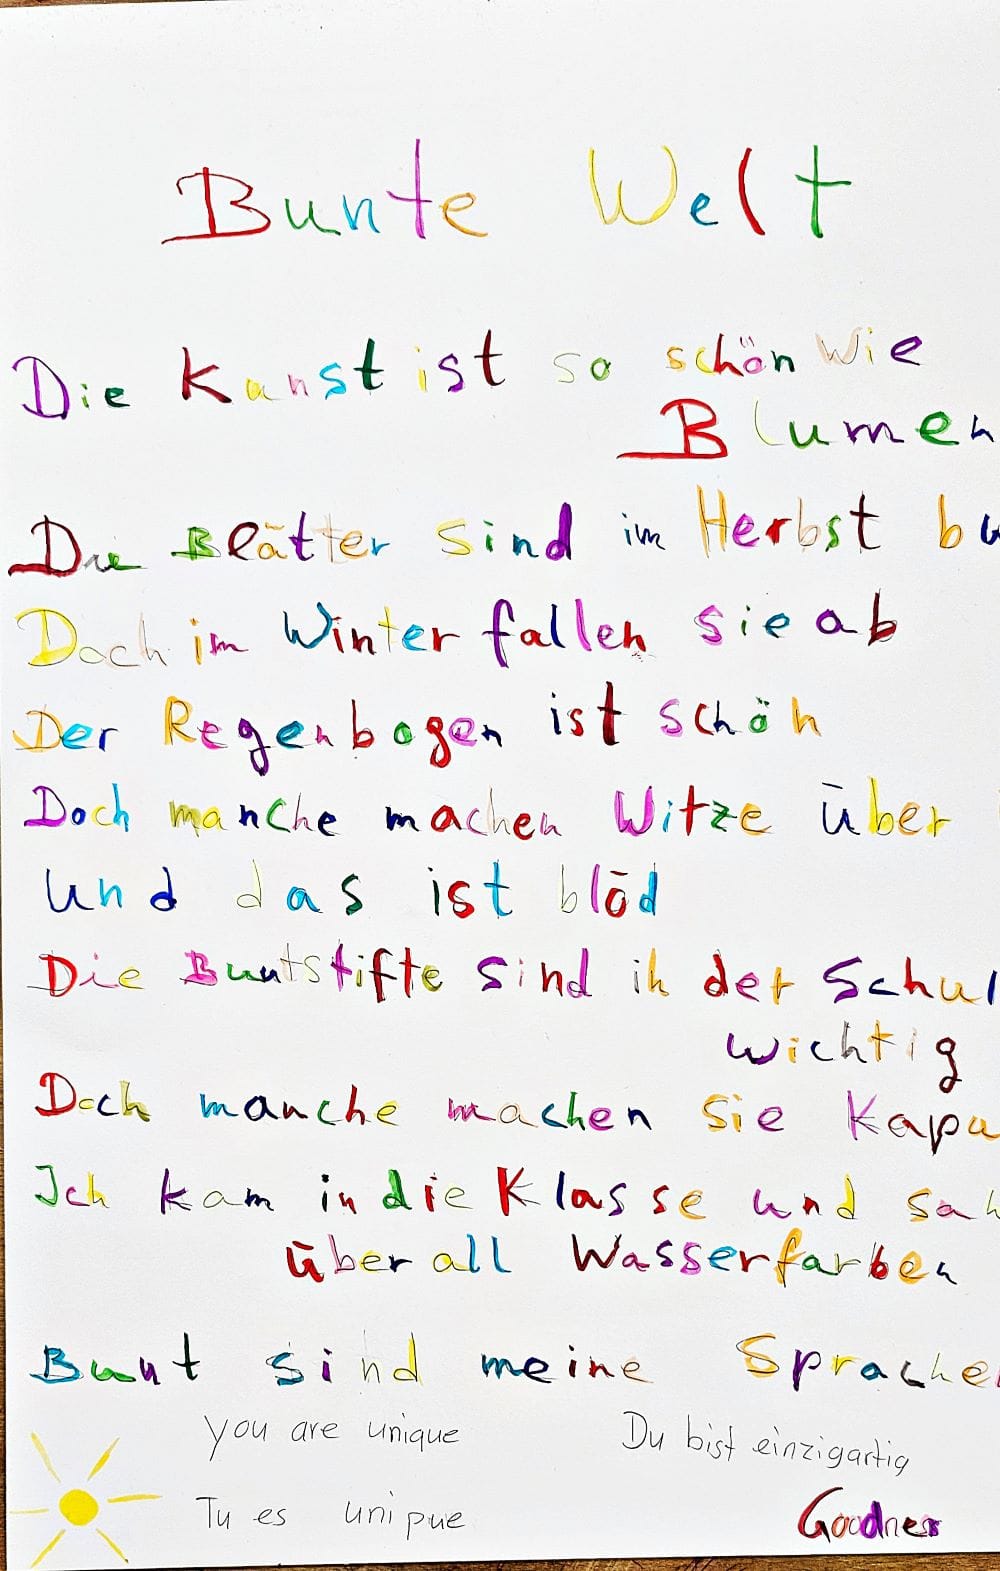 Bunte Welt
Die Kunst ist so schön wie
Blumen
Die Blätter sind im Herbst bu
Doch im Winter fallen sie ab
Der Regenbogen ist schön
Doch manche machen Witze über
und das ist blöd
Die Buntstifte sind in der Schul
wichtig
Doch manche machen sie kapu
Ich kam in die Klasse und sah
überall Wasserfarben
Bunt sind meine Sprachen
you are unique Du bist einzigartig
Tu es unipue Goodness